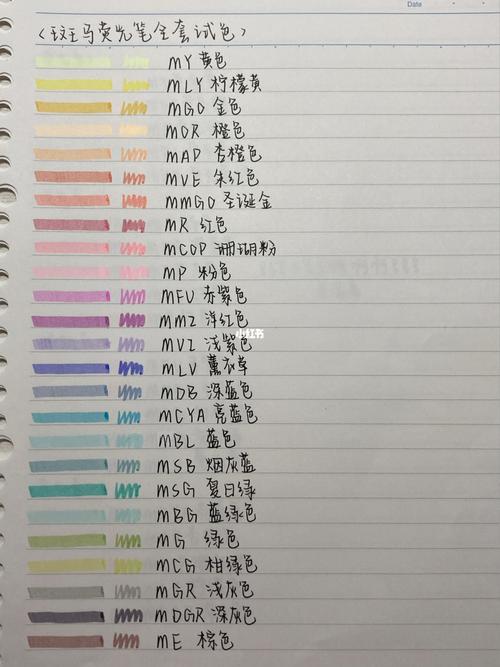 Date
〈斑马荧光笔全套试色〉
MY 黄色
MLY 柠檬黄
MGO 金色
MOR 橙色
MAP 杏橙色
MVE 朱红色
MMGO 圣诞金
MR 红色
MCOP 珊瑚粉
MP 粉色
MFU 赤紫色
MMZ 洋红色
MVI 浅紫色
小红书
MLV 薰衣草
MDB 深蓝色
MCYA 亮蓝色
MBL 蓝色
MSB 烟灰蓝
MSG 夏日绿
MBG 蓝绿色
MG 绿色
MCG 柑绿色
MGR 浅灰色
MDGR 深灰色
ME 棕色